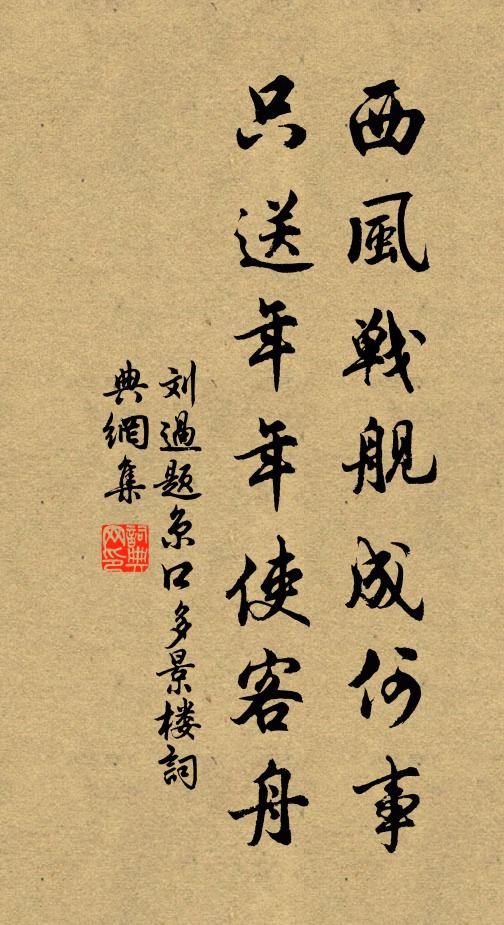 西風戦舰成何事
只送年年使客舟
刘過题京口多景楼詞
典網集
詞典
网印